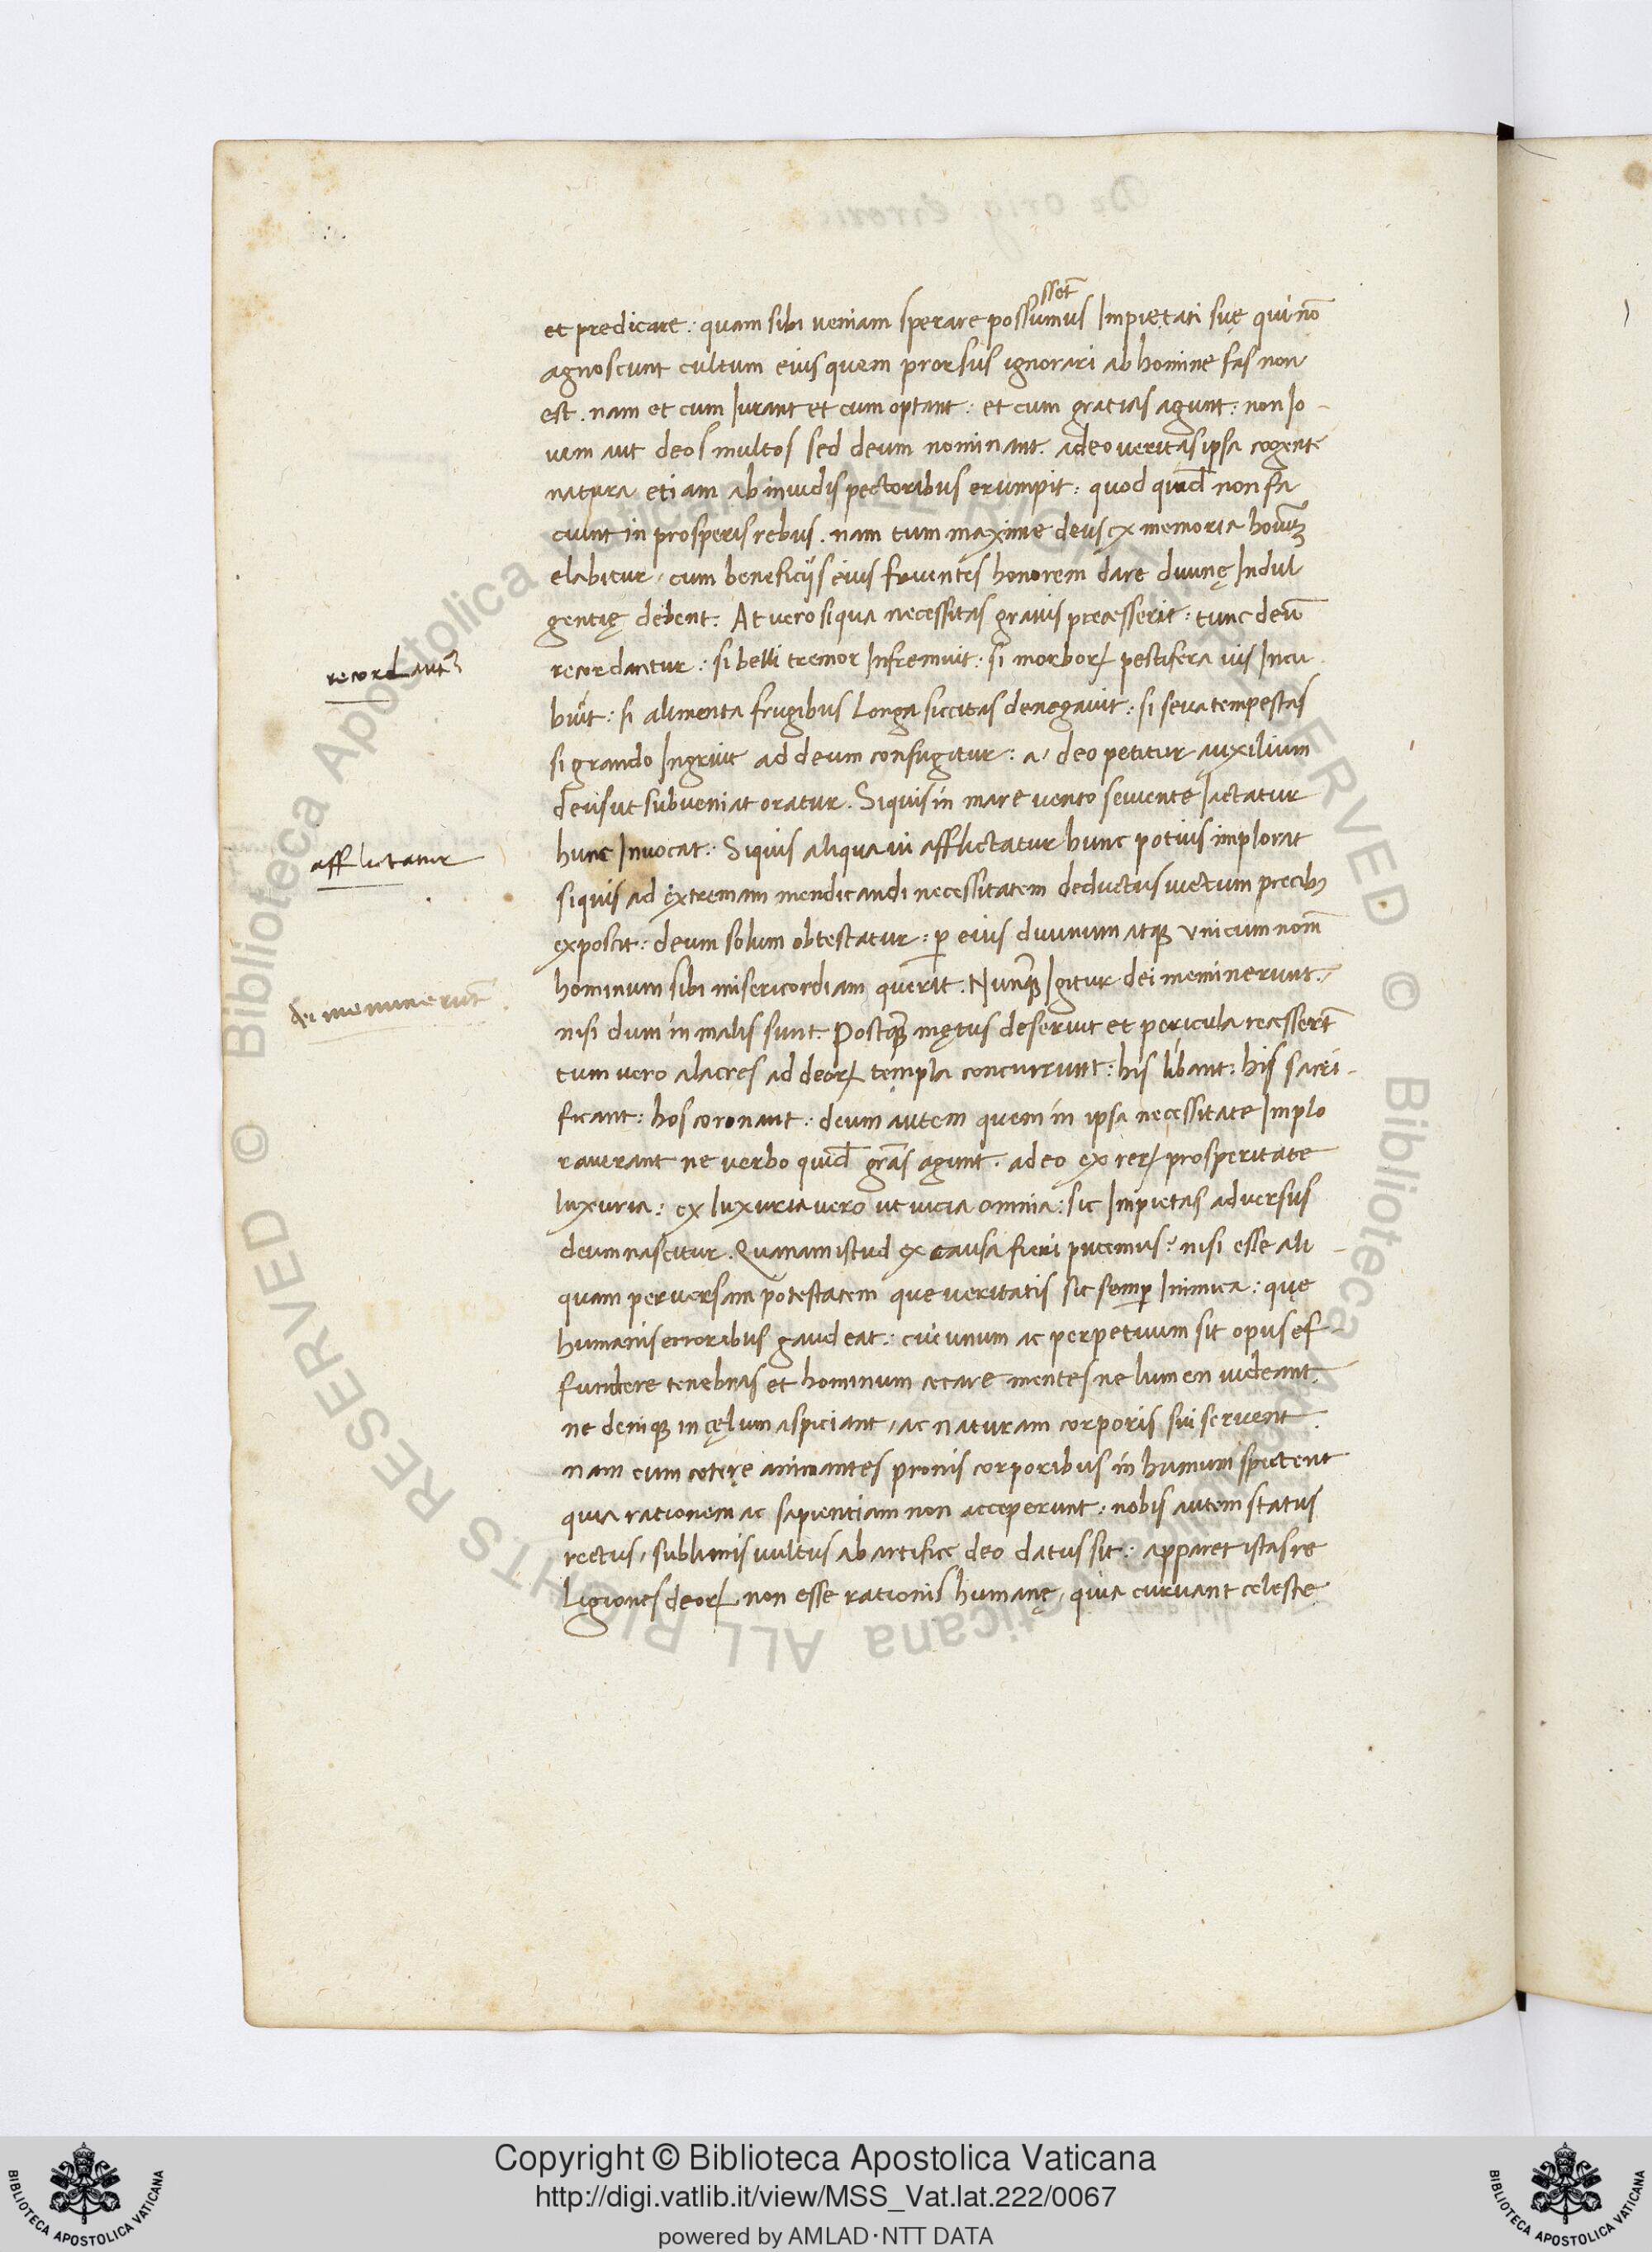 ssēt
et predicare: quam sibi ueniam sperare possumus Impietati suę qui nō
agnoscunt cultum eius quem prorsus ignorari ab homine fas non
est. nam et cum Iurant et cum optant: et cum gratias agunt: non Io-
uem aut deos multos sed deum nominant. adeo ueritas ipsa cogente
natura etiam ab inuidis pectoribus erumpit: quod quid̄ non fa
ciunt in prosperis rebus. nam tum maxime deus ex memoria
elabitur, cum beneficijs eius fruentes honorem dare diuinę Indul
gentię debent. At uero siqua necessitas grauis precesserit: tunc deū
recordantur: si belli tremor Infremuit: si morboꝝ pestifera uis Incu
buit: si alimenta frugibus Longa siccitas denegauit: si seua tempestas
si grando Ingruit ad deum confugitur: a deo petitur auxilium
deus ut subueniat oratur. Siquis in mare uento seuiente Iactatur
hunc Inuocat: Siquis aliqua ui afflictatur hunc potius implorat
siquis ad extremam mendicandi necessitatem deductus uictum precibꝫ
exposcit: deum solum obtestatur: ꝑ eius diuinum atqꝫ unicum nom̄
hominum sibi misericordiam querit. Nunqꝫ Igitur dei meminerunt
nisi dum in malis sunt. Postqꝫ mętus deseruit et pericula recessert̄
tum uero alacres ad deoꝝ templa concurrunt: his libant: his sacri-
ficant: hos coronant: deum autem quem in ipsa necessitate Implo
rauerant ne uerbo quid̄ gr̄as agunt. adeo ex reꝝ prosperitate
luxuria: ex luxuria uero ut uicia omnia: sic Impietas aduersus
deum nascitur. Quanam istud ex causa fieri putemus? nisi esse ali-
quam peruersam potestatem que ueritatis sic semꝑ Inimica: quę
humanis erroribus gaudeat: cui unum ac perpetuum sit opus ef-
fundere tenebras et hominum cecare mentes ne lumen uideant.
ne deniqꝫ in cęlum aspiciant, ac naturam corporis sui seruent.
nam cum ceterę animantes pronis corporibus in humum spectent
quia rationem ac sapientiam non acceperunt: nobis autem status
rectus, sublimis uultus ab artifice deo datus sit: apparet istas re
ligiones deoꝝ non esse rationis humanę, quia curuant celeste
recordant᷑
afflictatur
dei meminerūt
Copyright © Biblioteca Apostolica Vaticana
http://digi.vatlib.it/view/MSS_Vat.lat.222/0067
powered by AMLAD·NTT DATA
BIBLIOTECA APOSTOLICA VATICANA
BIBLIOTECA APOSTOLICA VATICANA
© Biblioteca Apostolica Vaticana ALL RIGHTS RESERVED © Biblioteca Apostolica Vaticana ALL RIGHTS RESERVED